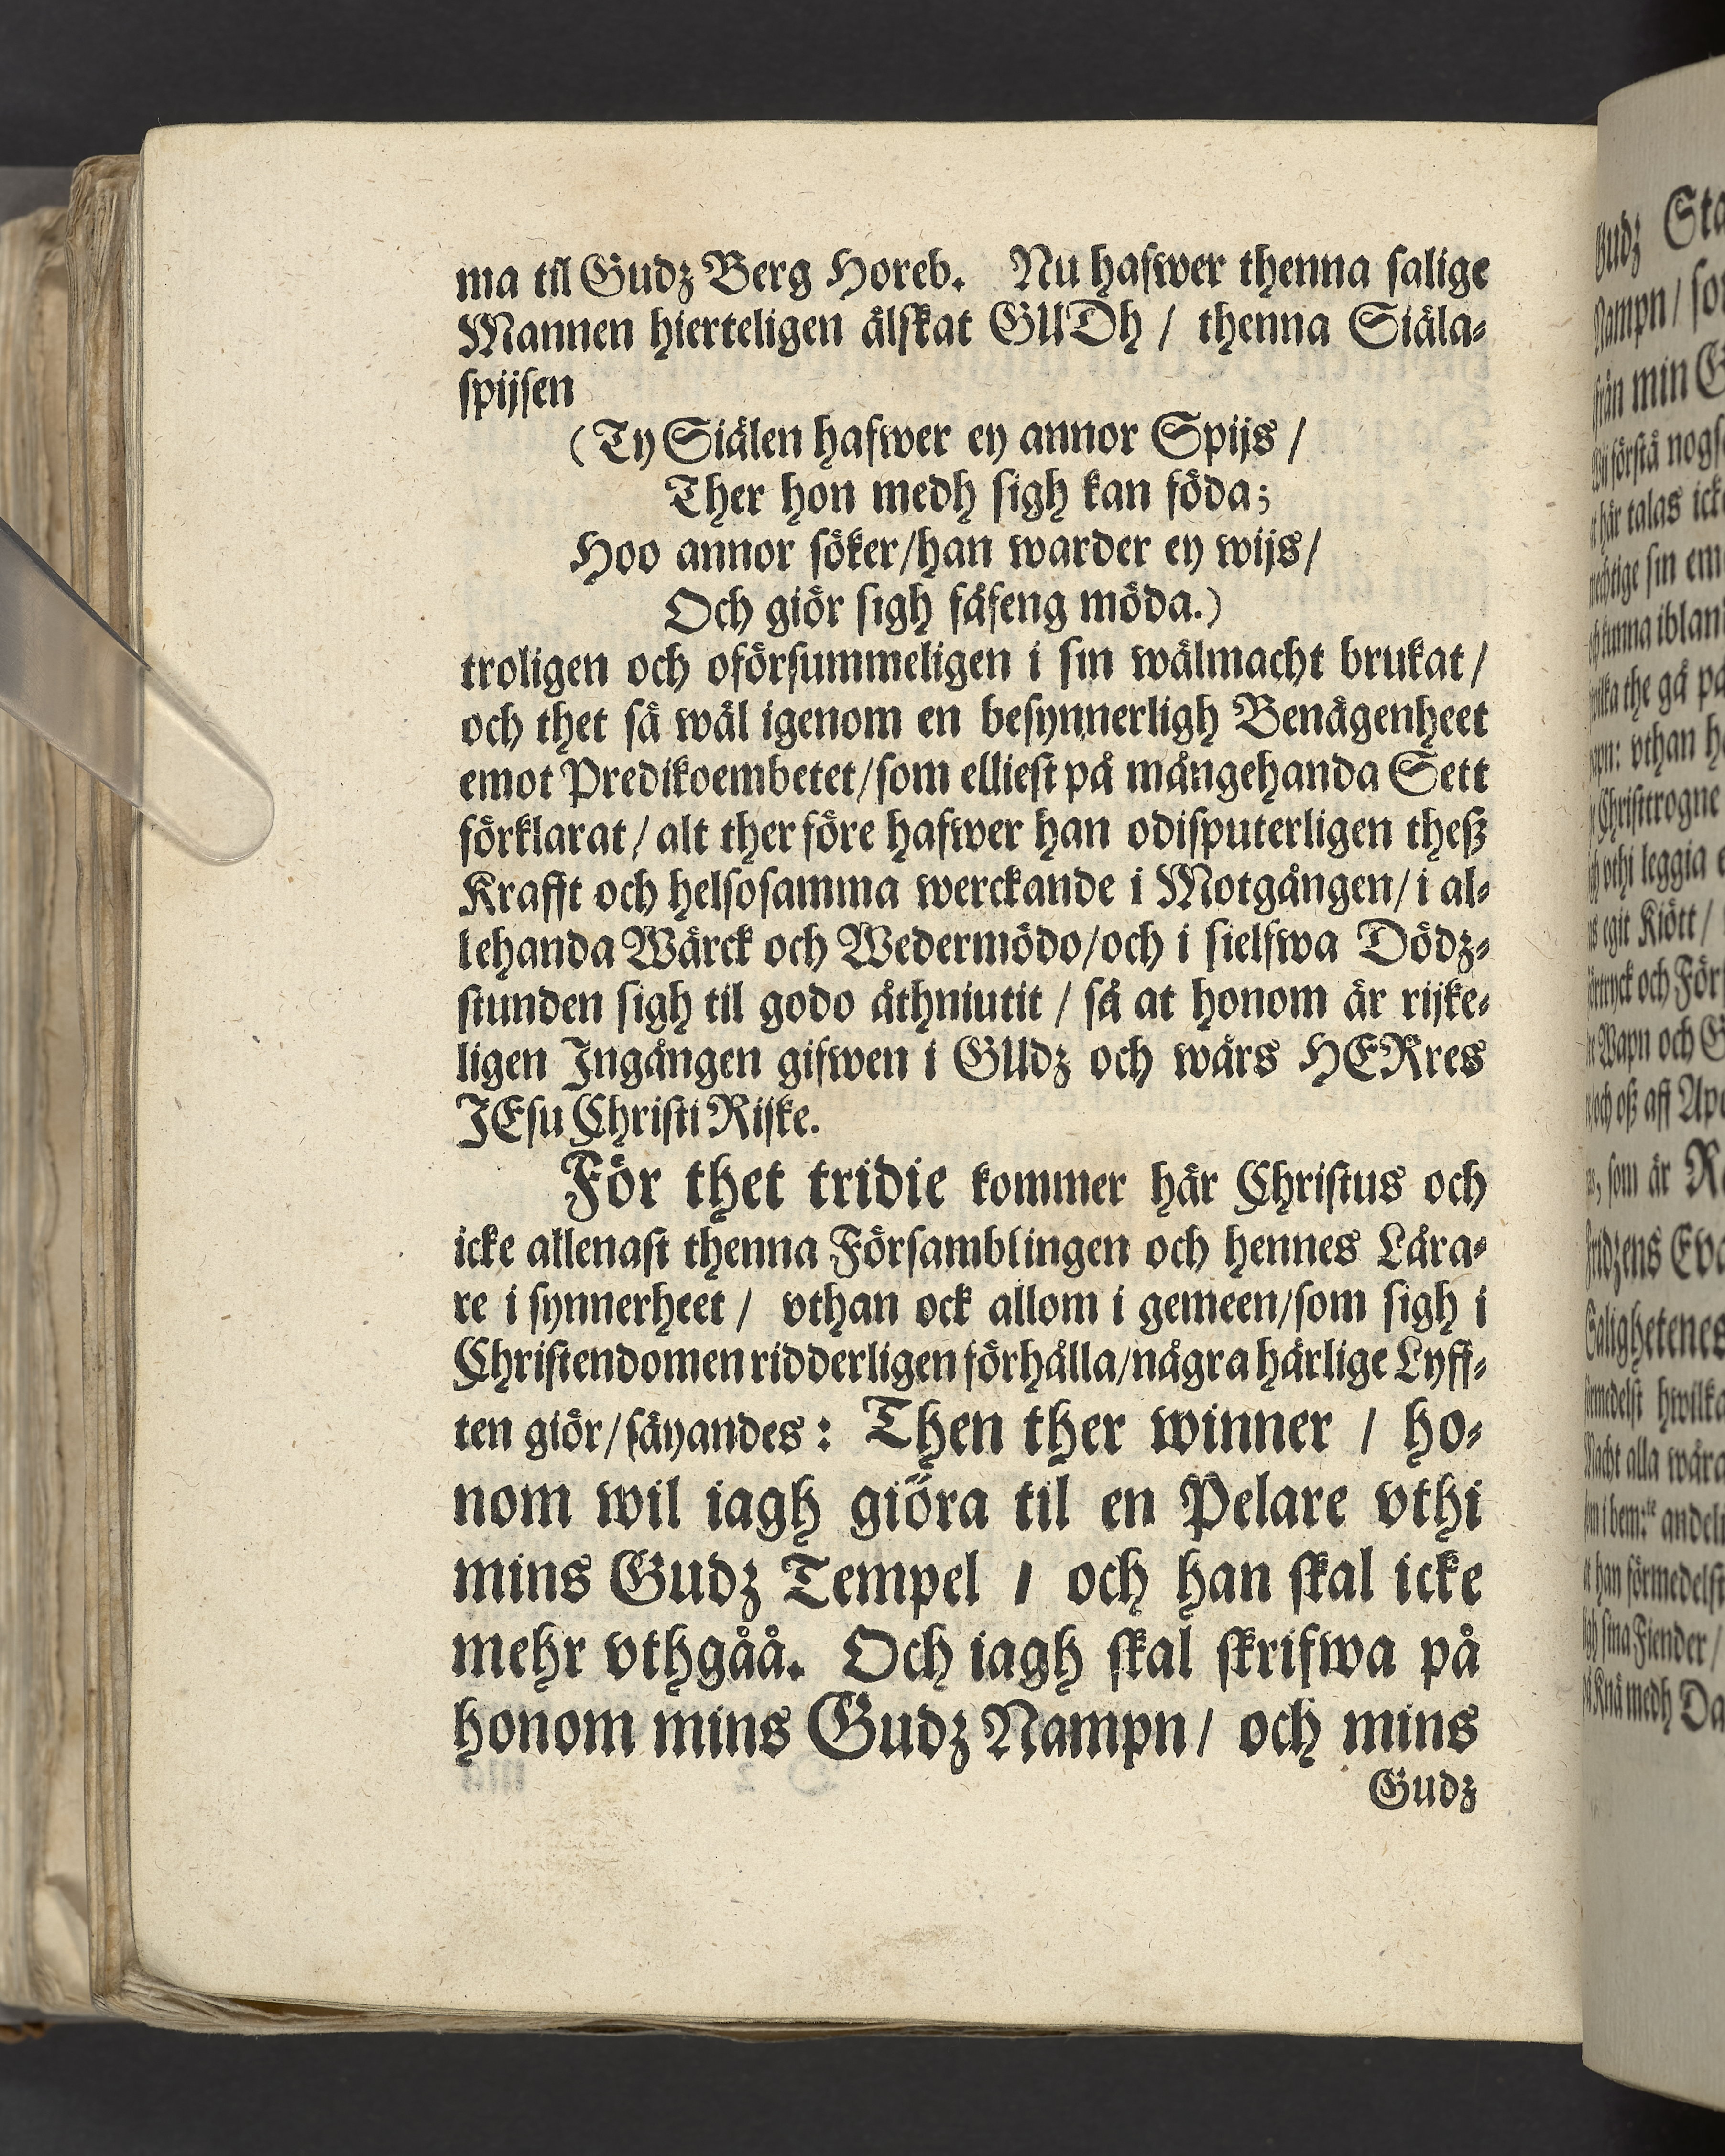 ma til Gudz Berg Horeb. Nu hafwer thenna salige
Mannen hierteligen älskat GUDh / thenna Siäla-
spijsen
(Ty Siälen hafwer ey annor Spijs /
Ther hon medh sigh kan föda;
Hoo annor söker/han warder ey wijs/
Och giör sigh fåfeng möda.)
troligen och oförsummeligen i sin wälmacht brukat/
och thet så wäl igenom en besynnerligh Benägenheet
emot Predikoembetet/som elliest på mångehanda Sett
förklarat/ alt ther före hafwer han odisputerligen theß
Krafft och helsosamma werckande i Motgången/ i al-
lehanda Wärck och Wedermödo/och i sielfwa Dödz-
stunden sigh til godo åthniutit / så at honom är rijke-
ligen Ingången gifwen i GUdz och wårs HERres
JEsu Christi Rijke.
För thet tridie kommer här Christus och
icke allenast thenna Församblingen och hennes Lära-
re i synnerheet / vthan ock allom i gemeen/som sigh i
Christendomen ridderligen förhålla/några härlige Lyff-
ten giör/säyandes: Then ther winner / ho-
nom wil iagh giöra til en Pelare vthi
mins Gudz Tempel / och han skal icke
mehr vthgåå. Och iagh skal skrifwa på
honom mins Gudz Nampn/ och mins
Gudz
Gudz Sta
Nampn/ so
min G
förstå nogs
här talas ick
sin em
iblan
the gå på
vthan h
Christtrogne
vthi leggia
egit Kiött /
och För
Wapn och G
och oß aff Apo
som är R
Eva
Salighetenes
hwilka
Macht alla wåra
han förmedelst
sina Fiender /
Knä medh Da